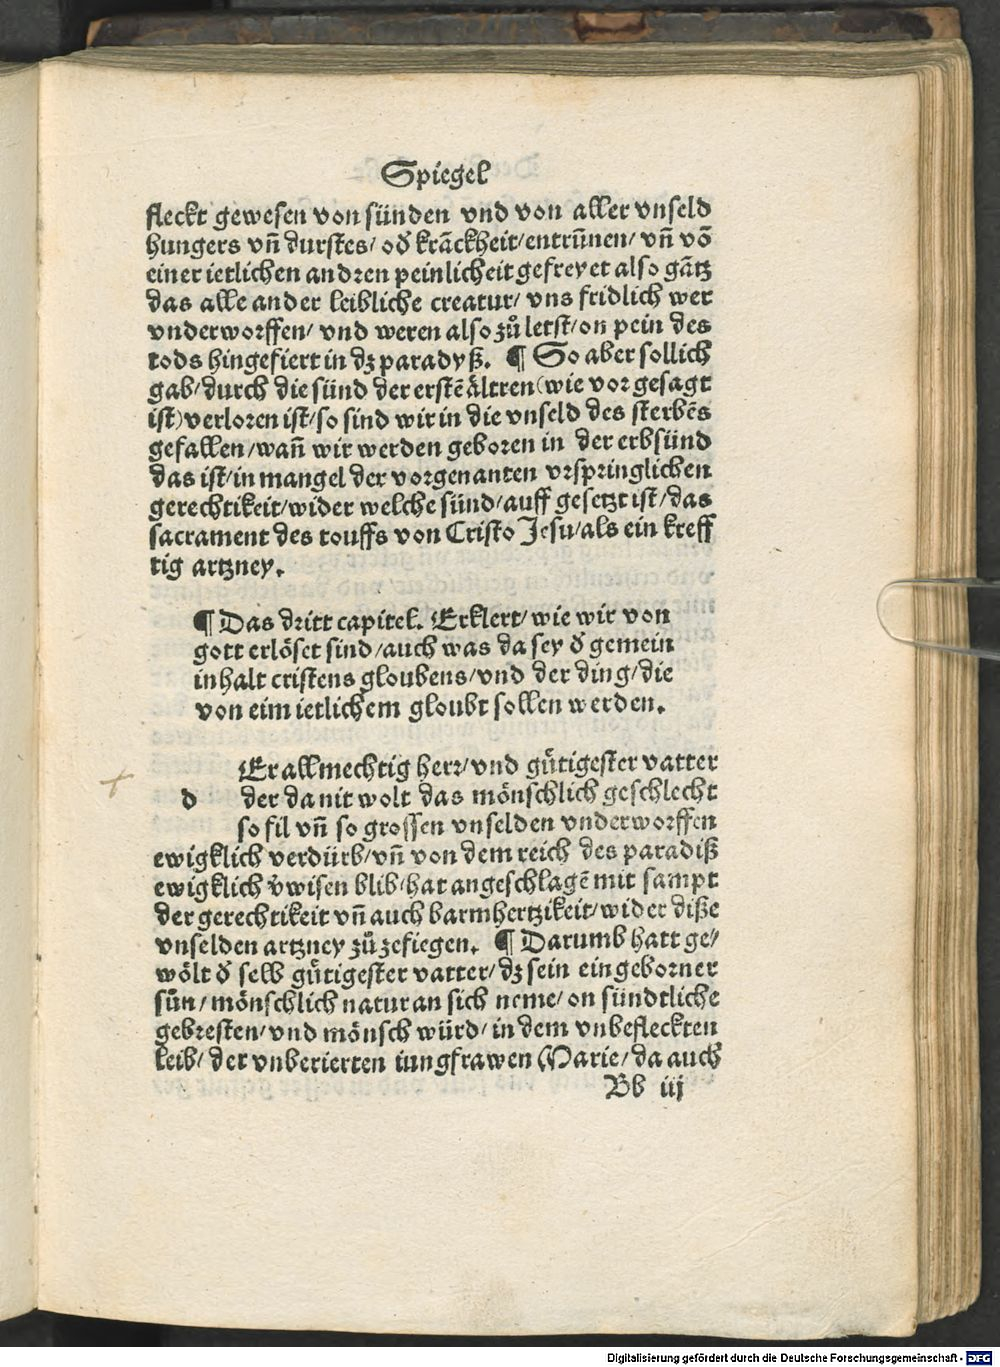 Spiegel
fleckt gewesen von sünden vnd von aller vnseld
hungers vn̄ durstes/ oď krāckheit/entrūnen/ vn̄ vō
einer ietlichen andren peinlicheit gefreyet also gātz
das alle ander leibliche creatur/ vns fridlich wer
vnderworffen/ vnd weren also zů letst/on pein des
tods hingefiert in dz paradyß. ¶ So aber sollich
gab/durch die sünd der erstē ältren(wie vor gesagt
ist)verloren ist/so sind wir in die vnseld des sterbēs
gefallen/wan̄ wir werden geboren in der erbsünd
das ist/in mangel der vorgenanten vrspringlichen
gerechtikeit/wider welche sünd/auff gesetzt ist/das
sacrament des touffs von Cristo Jesu/als ein kreff
tig artzney.
¶ Das dritt capitel. Erklert/wie wir von
gott erlöset sind/auch was da sey ď gemein
inhalt cristens gloubens/vnd der ding/die
von eim ietlichem gloubt sollen werden.
Er allmechtig herr/vnd gütigester vatter
d der da nit wolt das mönschlich geschlecht
so fil vn̄ so grossen vnselden vnderworffen
ewigklich verdürb/vn̄ von dem reich des paradiß
ewigklich v̓wisen blib/hat angeschlagē mit sampt
der gerechtikeit vn̄ auch barmhertzikeit/wider diße
vnselden artzney zů zefiegen. ¶ Darumb hatt ge/
wölt ď selb gütigester vatter/dz sein eingeborner
sůn/mönschlich natur an sich neme/on sündtliche
gebresten/vnd mönsch würd/in dem vnbefleckten
leib/der vnberierten iungfrawen Marie/da auch
Bb iij
Digitalisierung gefördert durch die Deutsche Forschungsgemeinschaft - DFG